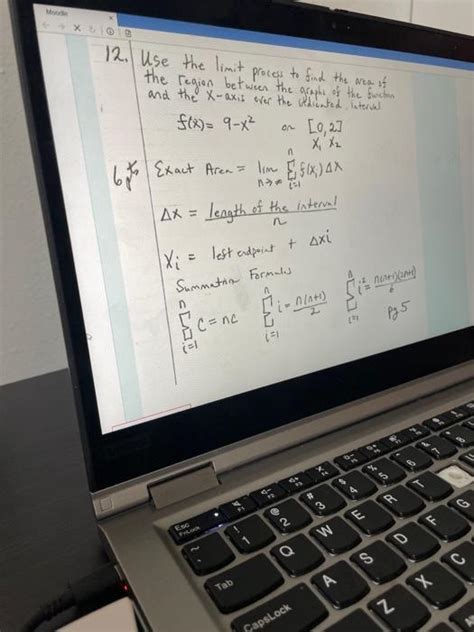 Moodle
12. Use the limit process to find the area of
the region between the graphs of the function
and the x-axis over the indicated interval
f(x) = 9-x² on [0,2]
x₁ x₂
Exact Area = lim n→∞ n Σ i=1 f(xᵢ) Δx
Δx = length of the interval / n
xᵢ = left endpoint + Δxi
Summation Formulas
n Σ i=1 C = nc n Σ i=1 i = n(n+1)/2 n Σ i=1 i² = n(n+1)(2n+1)/6
pg 5
Esc
FnLock
F1
F2
F3
F4
~
!
1
@
2
#
3
$
4
%
5
Tab
Q
W
E
R
T
CapsLock
A
S
D
F
G
Z
X
C